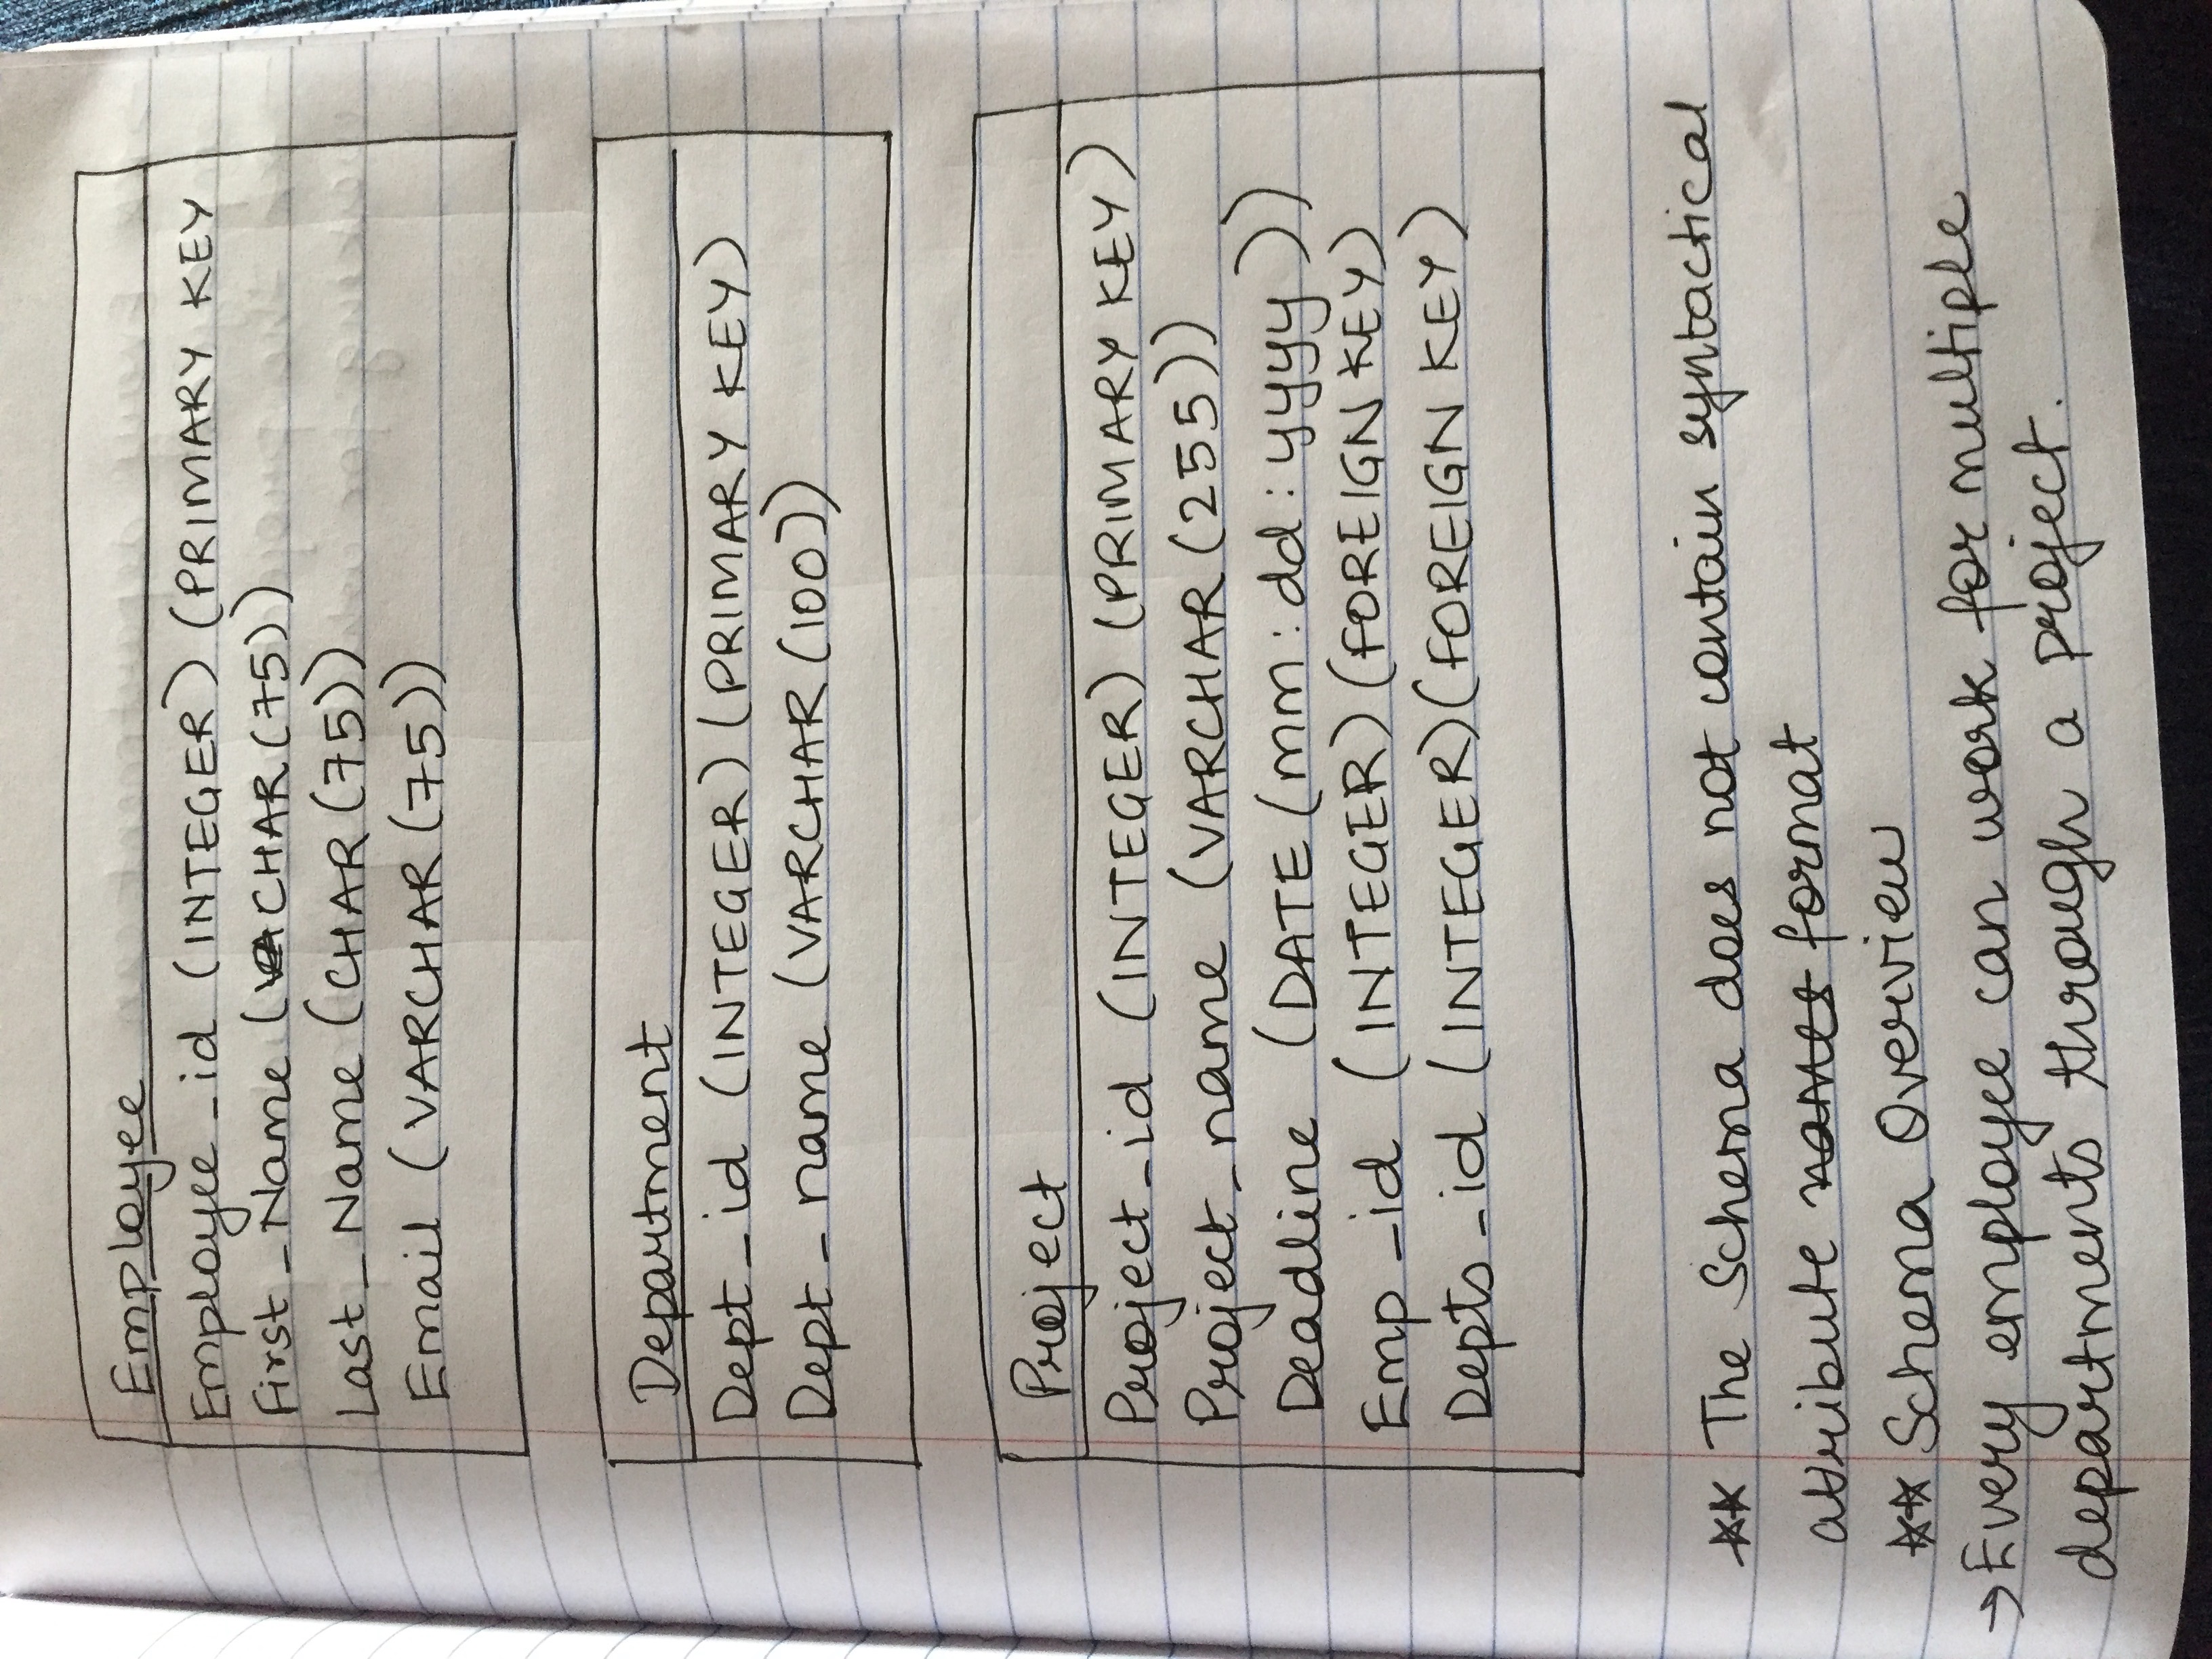 Employee
Employee_id (INTEGER) (PRIMARY KEY
First_Name (CHAR(75))
Last_Name (CHAR(75))
Email (VARCHAR(75))
Department
Dept_id (INTEGER) (PRIMARY KEY)
Dept_name (VARCHAR(100))
Project
Project_id (INTEGER) (PRIMARY KEY)
Project_name (VARCHAR(255))
Deadline (DATE(mm:dd:yyyy))
Emp_id (INTEGER)(FOREIGN KEY)
Depts_id (INTEGER)(FOREIGN KEY)
** The Schema does not contain syntactical
attribute format
** Schema Overview
→ Every employee can work for multiple
departments through a project.